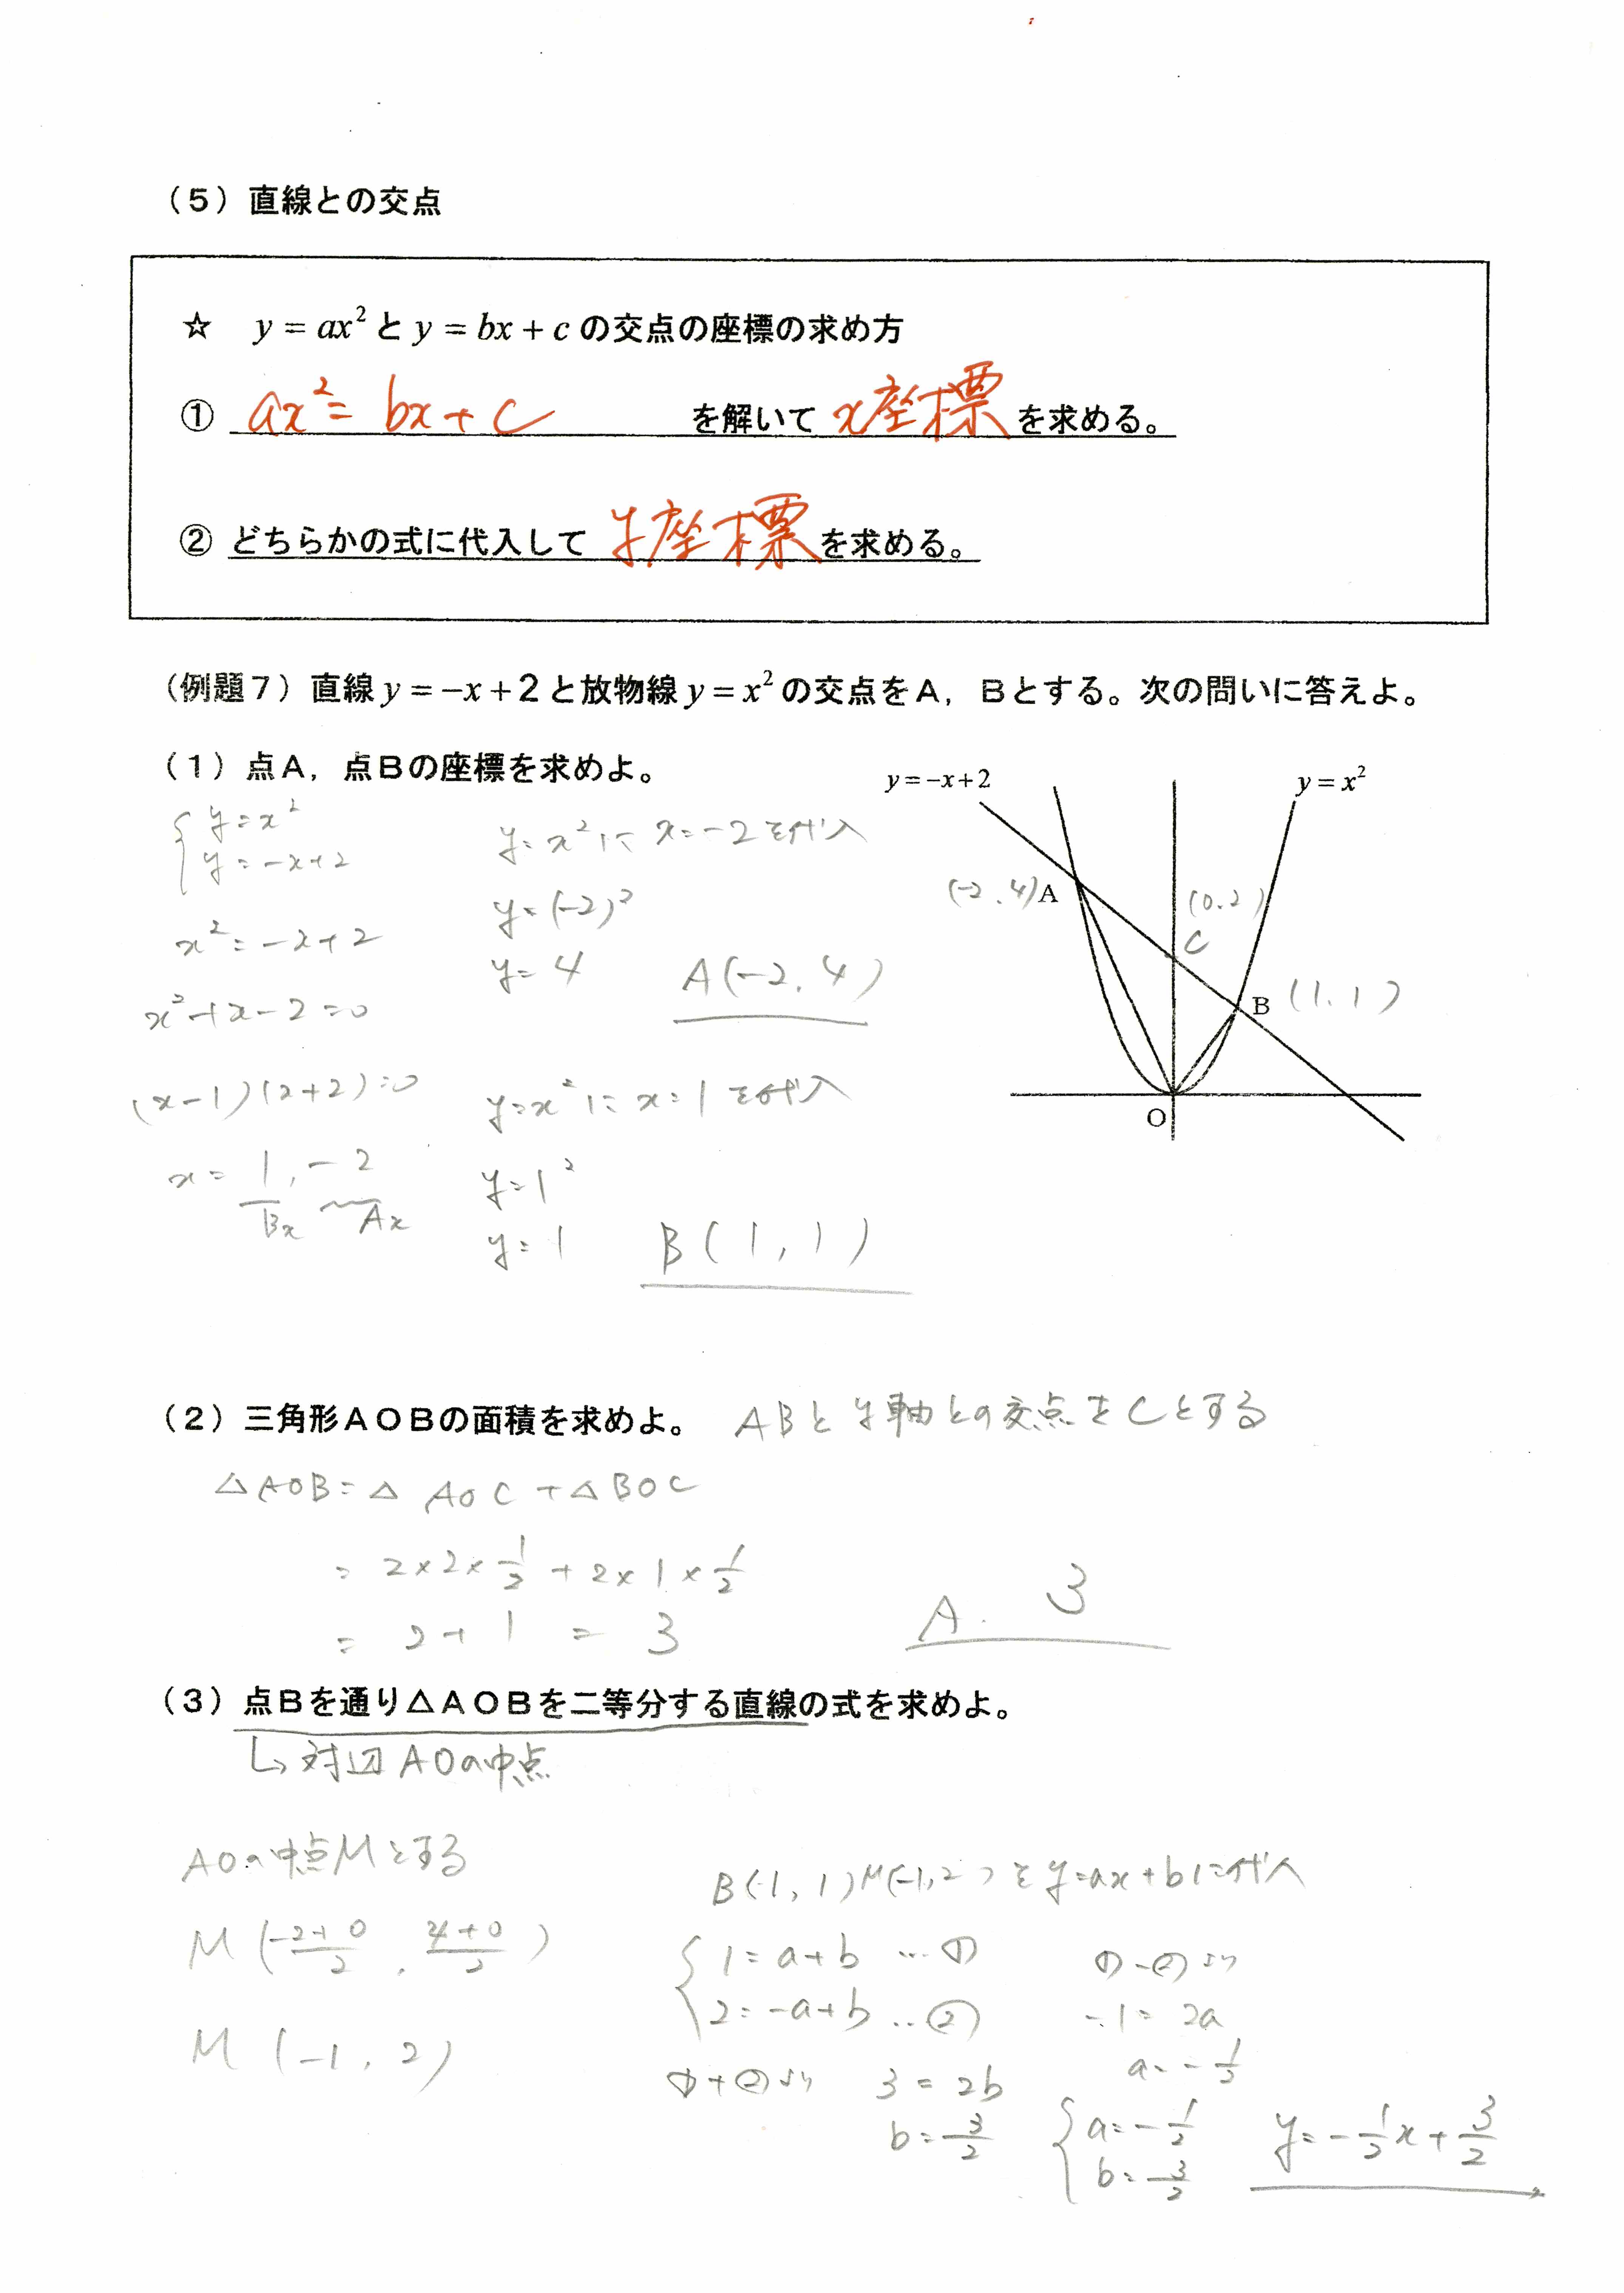 (5)直線との交点
☆ y = ax² と y = bx + c の交点の座標の求め方
① ax² = bx + c を解いて x座標 を求める。
② どちらかの式に代入して y座標 を求める。
(例題7)直線 y = −x + 2 と放物線 y = x² の交点をA，Bとする。次の問いに答えよ。
(1)点A，点Bの座標を求めよ。
{ y = x²
y = −x + 2
x² = −x + 2
x² + x − 2 = 0
(x − 1)(x + 2) = 0
x = 1, −2
Bx Ax
y = x² に x = −2 を代入
y = (−2)²
y = 4
A(−2, 4)
y = x² に x = 1 を代入
y = 1²
y = 1
B(1, 1)
y = −x + 2
y = x²
(−2, 4) A
(0, 2)
C
B (1, 1)
O
(2)三角形AOBの面積を求めよ。 ABとy軸との交点をCとする
△AOB = △AOC + △BOC
= 2 × 2 × 1/2 + 2 × 1 × 1/2
= 2 + 1 = 3
A. 3
(3)点Bを通り△AOBを二等分する直線の式を求めよ。
↳ 対辺AOの中点
AOの中点Mとする
M (−2+0/2, 4+0/2)
M (−1, 2)
B(1, 1) M(−1, 2) を y = ax + b に代入
{ 1 = a + b … ①
2 = −a + b … ②
①+②より 3 = 2b
b = 3/2
①−②より
−1 = 2a
a = −1/2
{ a = −1/2
b = 3/2
y = −1/2 x + 3/2